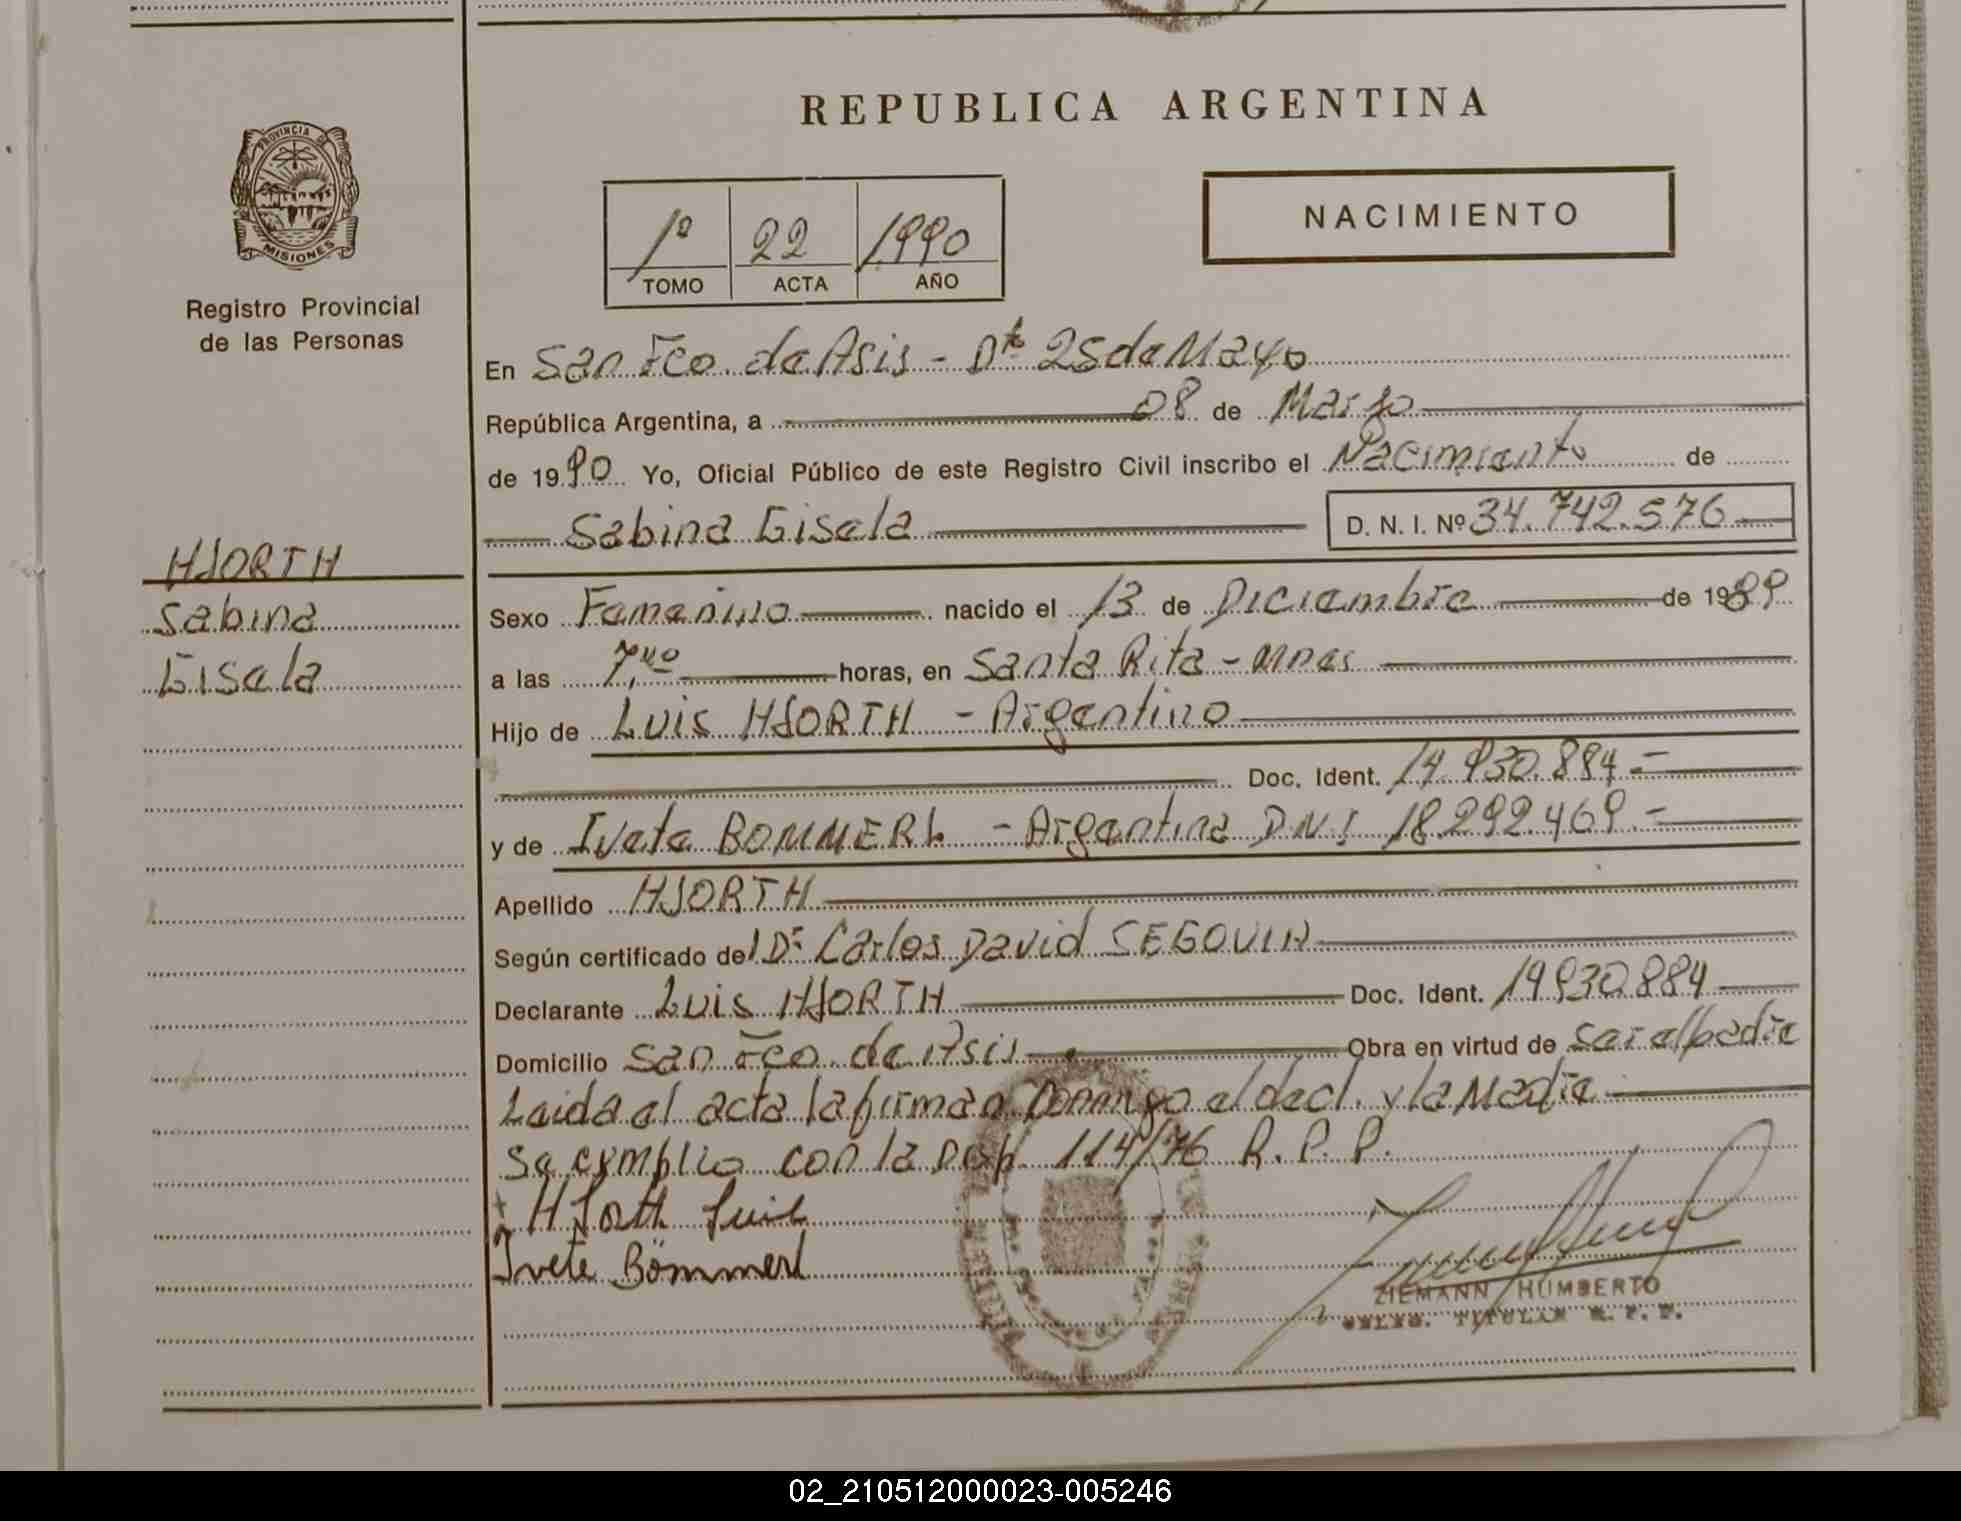 REPUBLICA ARGENTINA
PROVINCIA DE
MISIONES
Registro Provincial
de las Personas
1º 22 1990
TOMO ACTA AÑO
NACIMIENTO
En San Fco. de Asis - Dto 25 de Mayo
República Argentina, a 08 de Marzo
de 1990 Yo, Oficial Público de este Registro Civil inscribo el Nacimiento de
Sabina Gisela D. N. I. Nº 34.742.576
HJORTH
Sabina
Gisela
Sexo Femenino nacido el 13 de Diciembre de 1989
a las 7,40 horas, en Santa Rita - Mnes
Hijo de Luis HJORTH - Argentino
Doc. Ident. 14.930.884 =
y de Ivete BOMMERL - Argentina DNI 18.292.469 =
Apellido HJORTH
Según certificado del Dr. Carlos David SEGOVIA
Declarante Luis HJORTH Doc. Ident. 14930884
Domicilio San Fco. de Asis Obra en virtud de Ser el padre
Leida el acta la firman Conmigo el decl. y la Madre
Se cumplio con la Disp. 114/76 R. P. P.
Hjorth Luis
Ivete Bömmerl
ZIEMANN HUMBERTO
TITULAR R. P. P.
02_210512000023-005246